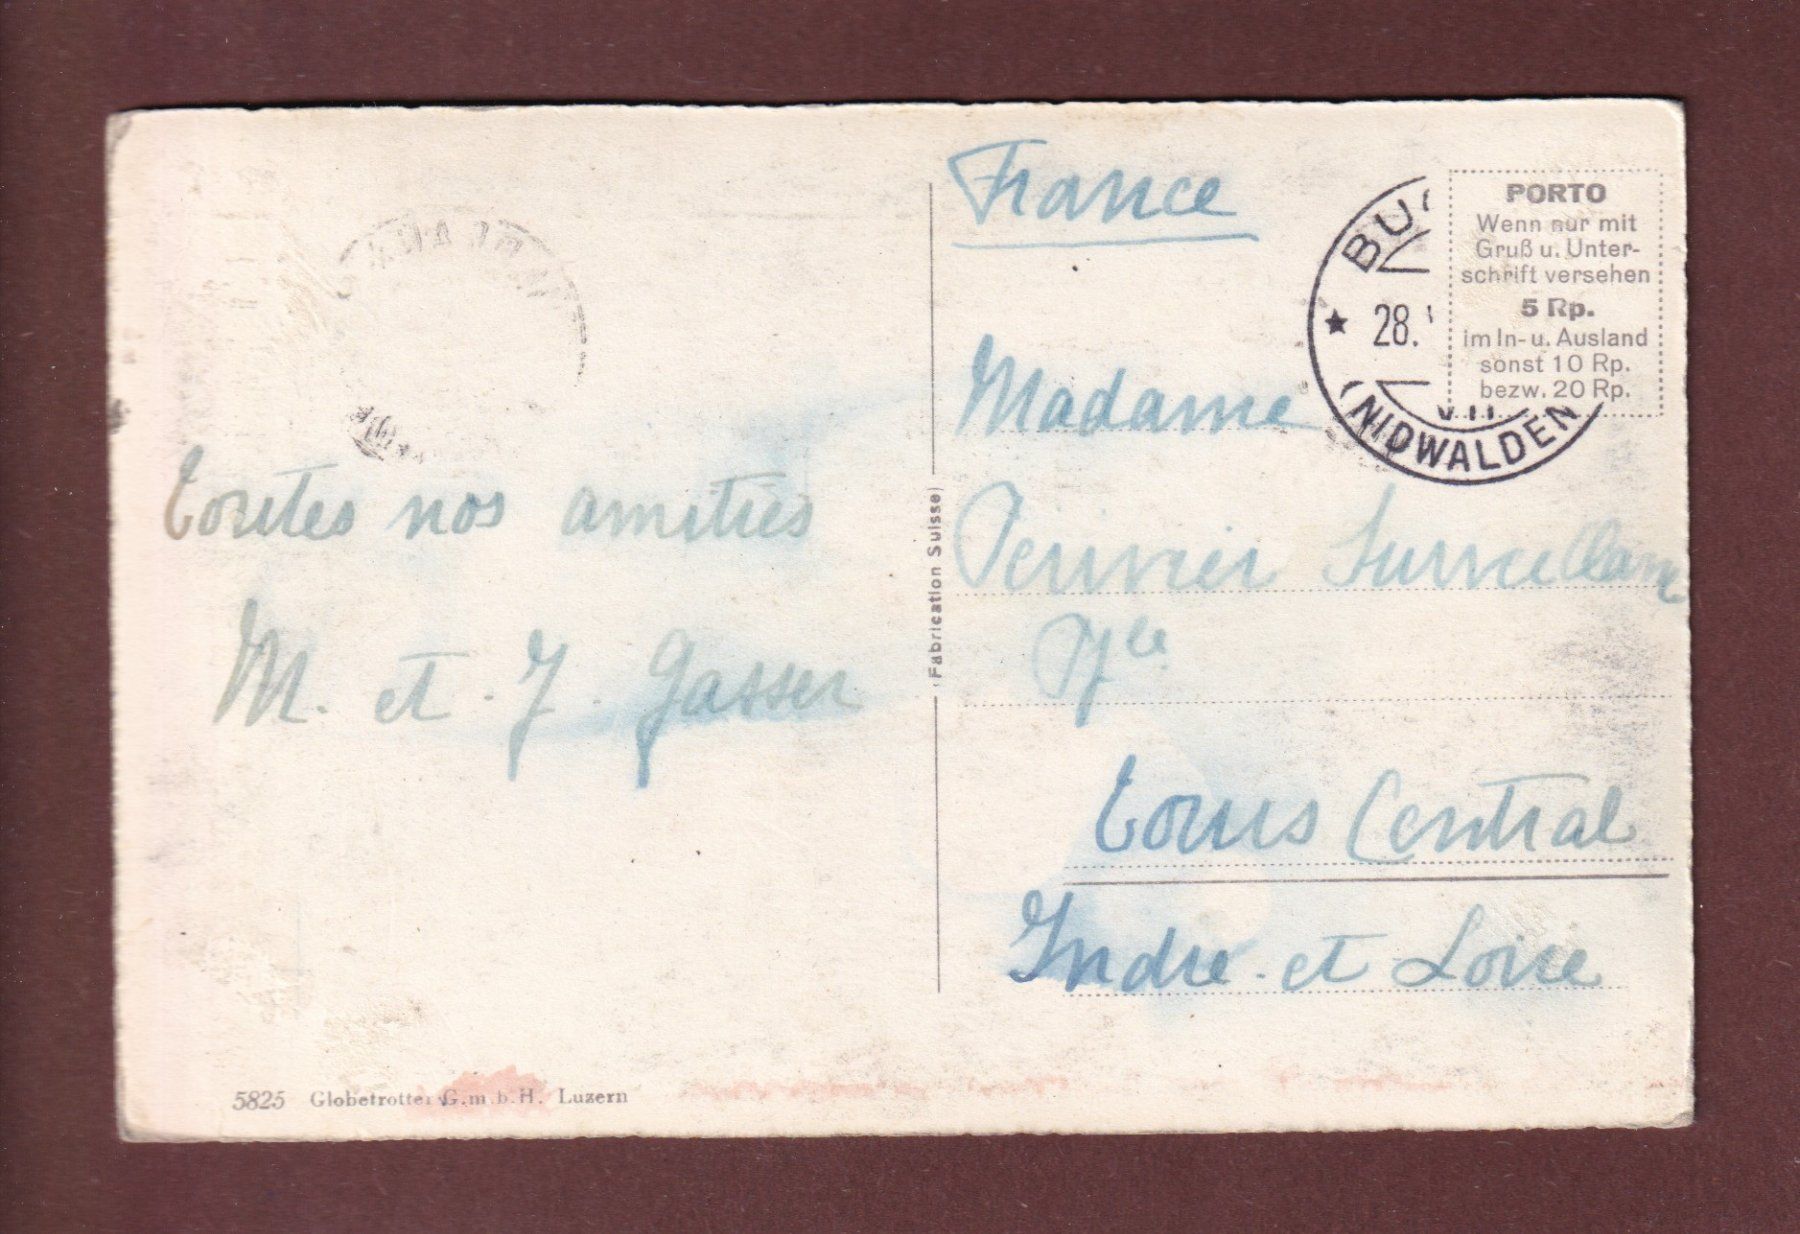 France
PORTO
Wenn nur mit
Gruß u. Unter-
schrift versehen
5 Rp.
im In- u. Ausland
sonst 10 Rp.
bezw. 20 Rp.
BU
28.
VII
(NIDWALDEN
Toutes nos amitiés
M. et J. Gasser
(Fabrication Suisse)
Madame
Perivier Surveillante
Ple
Tours Central
Indre-et-Loire
5825 Globetrotter G.m.b.H. Luzern